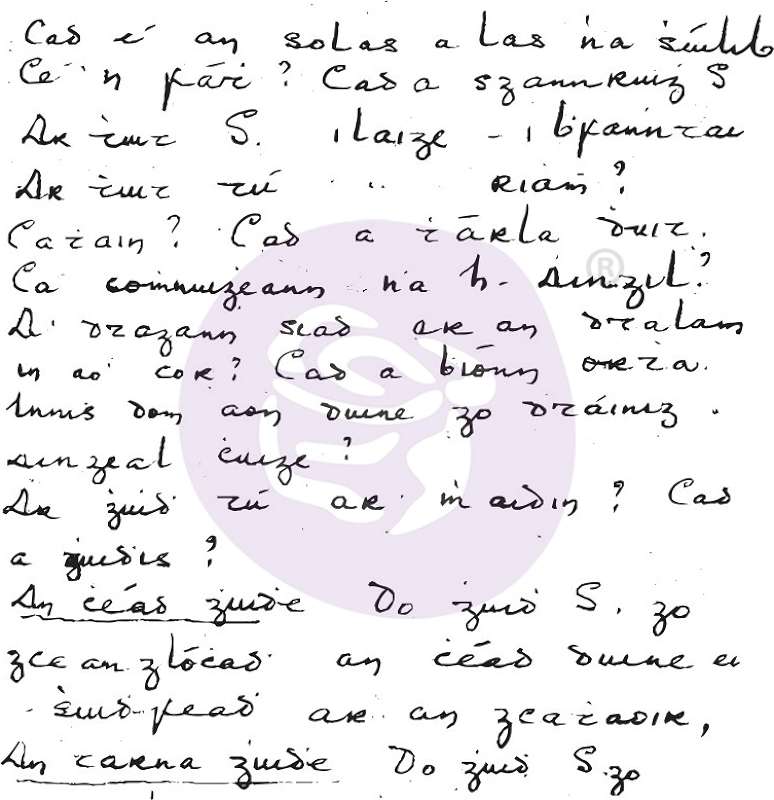 Cad é an solas a las 'na ṡúiliḃ
Cé'n fáṫ? Cad a sgannruiġ S
Ar ṫuit S. i laige - i ḃfanntai
Ar ṫuit tú " riaṁ?
Caṫain? Cad a ṫárla duit.
Ca coṁnuiġeann na h-Aingil?
A' dtagann siad ar an dtalaṁ
in ao' ċor? Cad a ḃíonn orṫa.
Innis dom aon duine go dtáiniġ
aingeal ċuige?
Ar ġuiḋ tú ar maidin? Cad
a ġuiḋis?
An ċéad ġuiḋe Do ġuiḋ S. go
gceanglócaḋ an ċéad duine ei
ṡuidfeaḋ ar an gcaṫaoir,
An tarna ġuiḋe Do ġuiḋ S. go